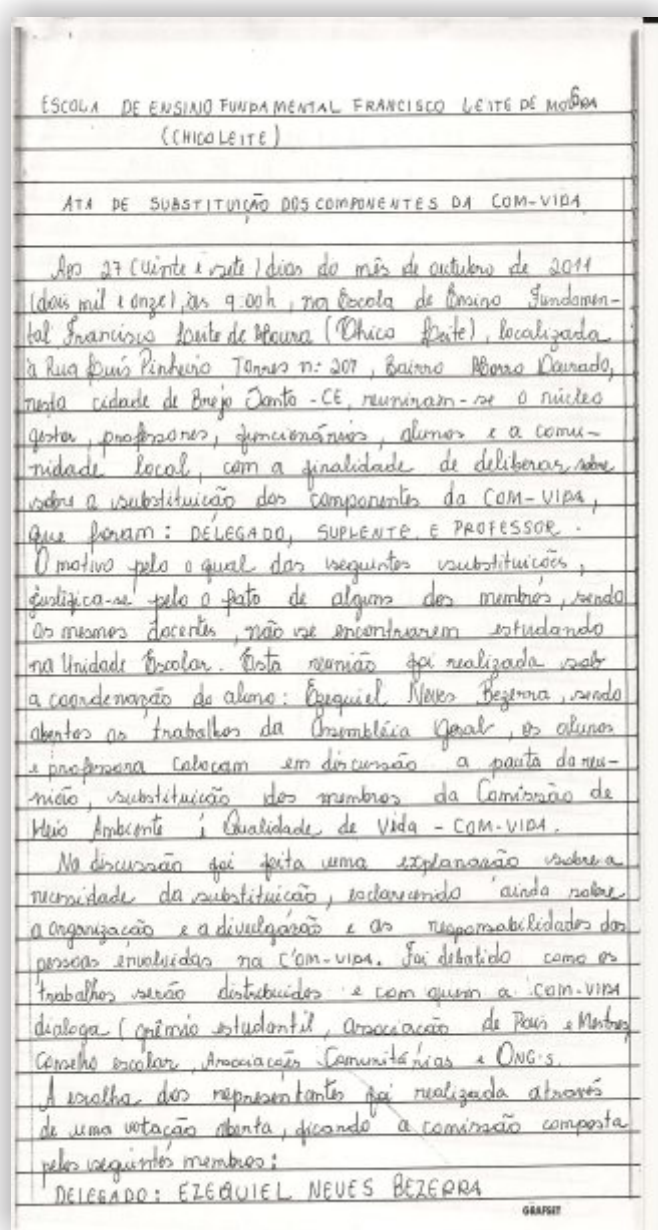 6
ESCOLA DE ENSINO FUNDAMENTAL FRANCISCO LEITE DE MOURA
(CHICO LEITE)
ATA DE SUBSTITUIÇÃO DOS COMPONENTES DA COM-VIDA
Aos 27 (vinte e sete) dias do mês de outubro de 2011
(dois mil e onze), às 9:00h, na Escola de Ensino Fundamen-
tal Francisco Leite de Moura (Chico Leite), localizada
à Rua Luís Pinheiro Torres n: 207, Bairro Morro Dourado,
nesta cidade de Brejo Santo - CE, reuniram-se o núcleo
gestor, professores, funcionários, alunos e a comu-
nidade local, com a finalidade de deliberar sobre
sobre a substituição dos componentes da COM-VIDA,
que foram: DELEGADO, SUPLENTE E PROFESSOR.
O motivo pelo o qual das seguintes substituições,
justifica-se pelo o fato de alguns dos membros, sendo
os mesmos docentes, não se encontrarem estudando
na Unidade Escolar. Esta reunião foi realizada sob
a coordenação do aluno: Ezequiel Neves Bezerra, sendo
abertos os trabalhos da Assembléia Geral, os alunos
e professora colocam em discussão a pauta da reu-
nião, substituição dos membros da Comissão de
Meio Ambiente i Qualidade de Vida - COM-VIDA.
Na discussão foi feita uma explanação sobre a
necessidade da substituição, esclarecendo ainda sobre
a organização e a divulgação e as responsabilidades das
pessoas envolvidas na COM-VIDA. Foi debatido como os
trabalhos serão distribuidos e com quem a COM-VIDA
dialoga (grêmio estudantil, Associação de Pais e Mestres,
Conselho escolar, Associações Comunitárias e ONG'S.
A escolha dos representantes foi realizada através
de uma votação aberta, ficando a comissão composta
pelos seguintes membros:
DELEGADO: EZEQUIEL NEVES BEZERRA
GRAFSET